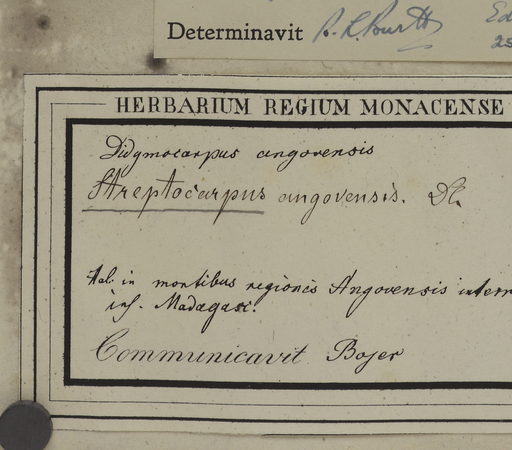 Determinavit B. L. Burtt Ed
HERBARIUM REGIUM MONACENSE
Didymocarpus angovensis
Streptocarpus angovensis. DC.
Hab. in montibus regionis Angovensis intern
ins. Madagasc.
Communicavit Bojer